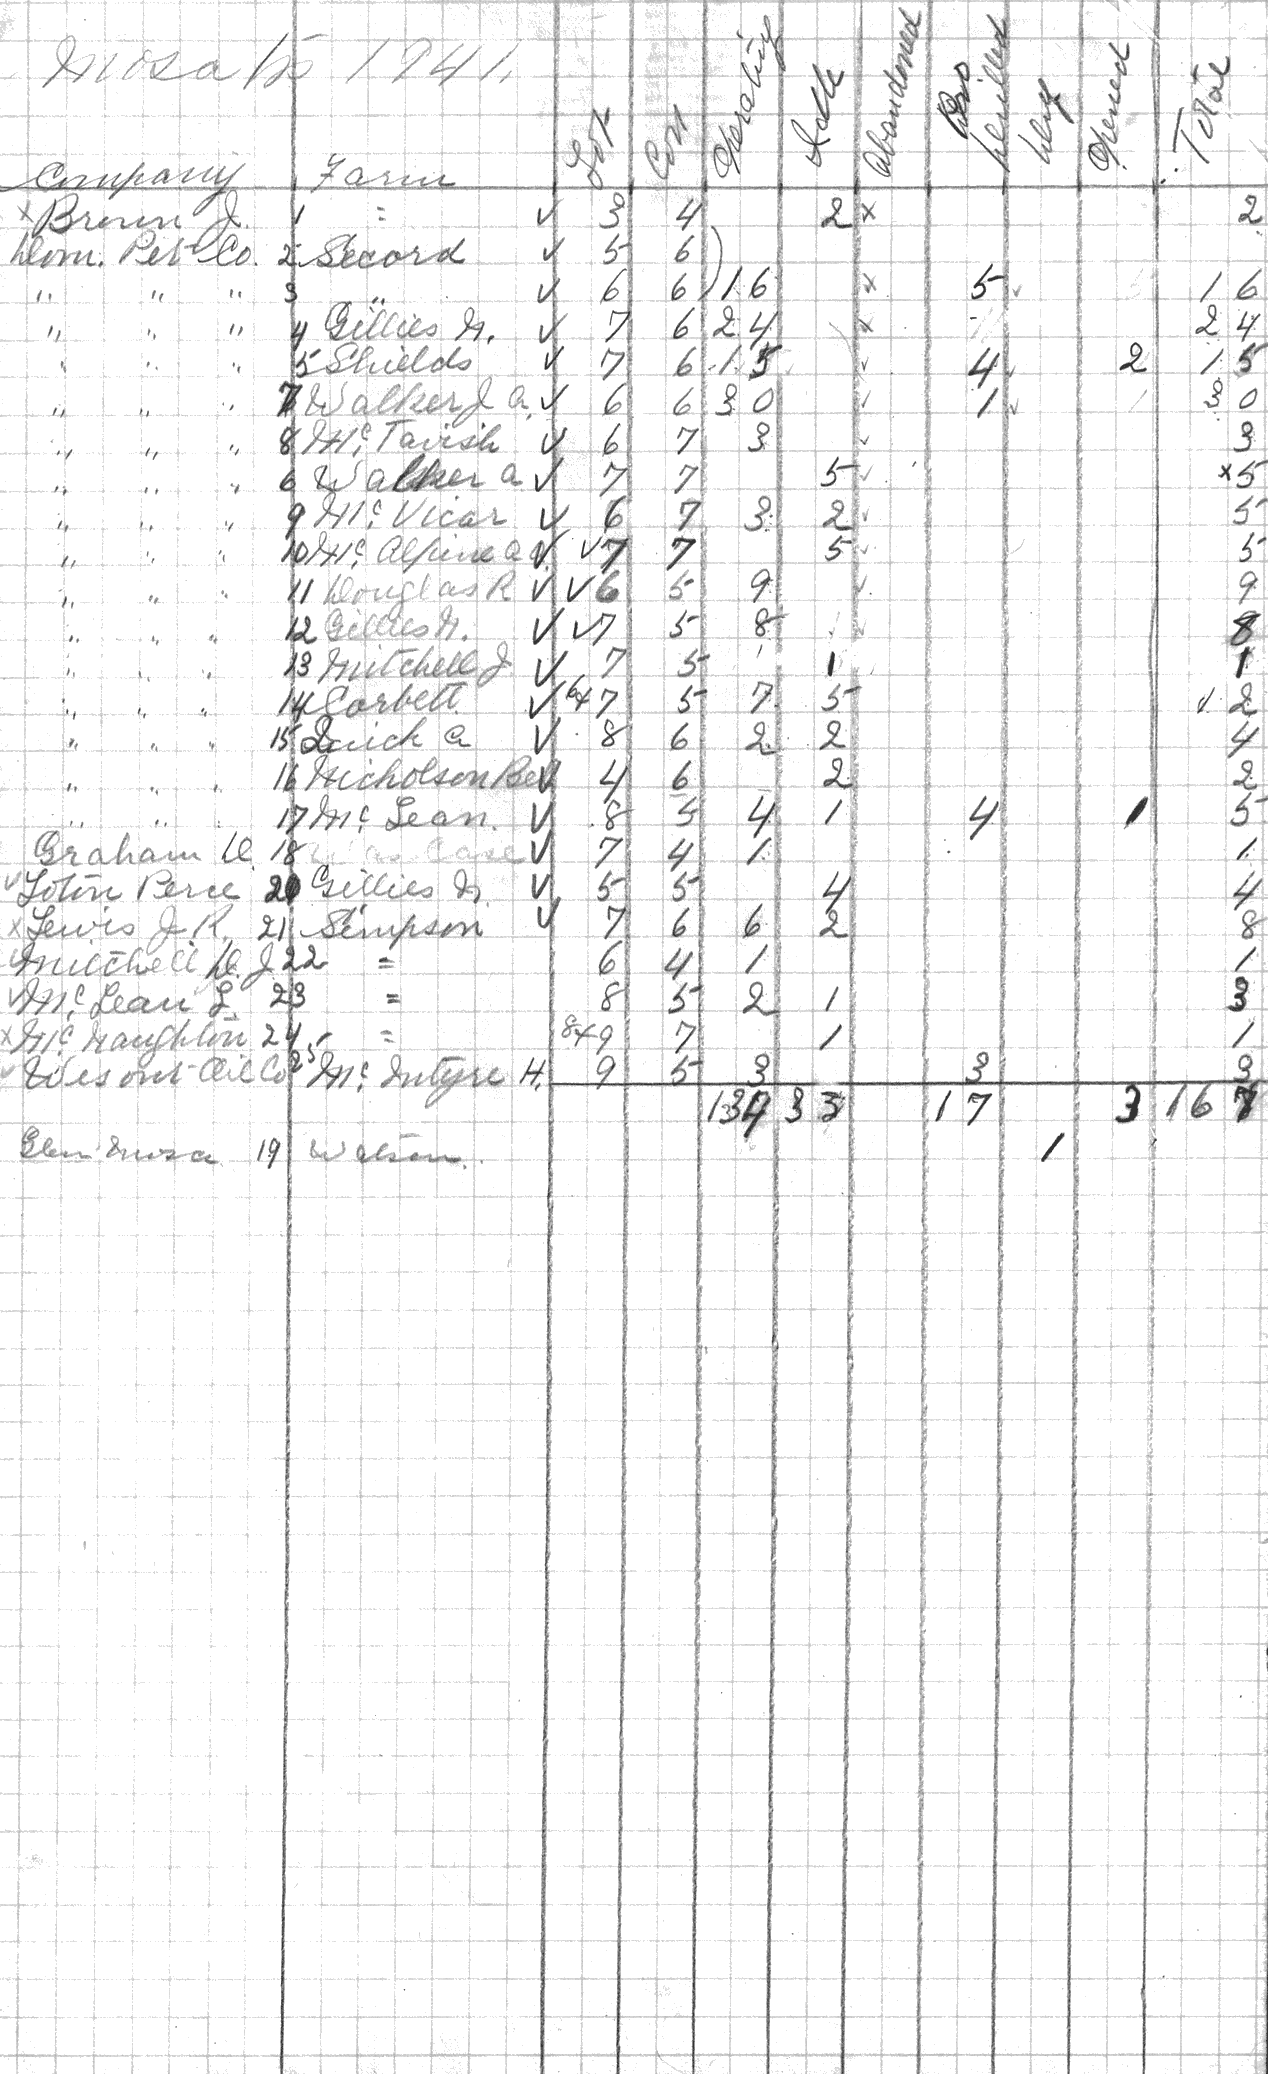 Mosa 1941.
Company Farm Lot Con Operating Idle Abandoned Pro drilled Opened Total
x Brown J. 1 " ✓ 3 4 2 x 2
Dom. Pet Co. 2 Secord ✓ 5 6
" " " 3 " ✓ 6 6 16 x 5 ✓ 16
" " " 4 Gillies N. ✓ 7 6 24 x 24
" " " 5 Shields ✓ 7 6 15 ✓ 4 ✓ 2 15
" " " 7 Walker J a. ✓ 6 6 30 ✓ 1 ✓ 30
" " " 8 Mc Tavish ✓ 6 7 3 ✓ 3
" " " 6 Walker a ✓ 7 7 5 ✓ x 5
" " " 9 Mc Vicar ✓ 6 7 3 2 ✓ 5
" " " 10 Mc Alpine a ✓ ✓ 7 7 5 ✓ 5
" " " 11 Douglas R ✓ ✓ 6 5 9 ✓ 9
" " " 12 Gillies N. ✓ ✓ 7 5 8 8
" " " 13 Mitchell J ✓ 7 5 1 1
" " " 14 Corbett ✓ 6x7 5 7 5 12
" " " 15 Quick a ✓ 8 6 2 2 4
" " " 16 Nicholson Be ✓ 4 6 2 2
" " " 17 Mc Lean. ✓ 8 5 4 1 4 1 5
Graham D. 18 ✓ 7 4 1 1
✓ Lotin Perce 20 Gillies N. ✓ 5 5 4 4
x Lewis J. R. 21 Simpson ✓ 7 6 6 2 8
✓ Mitchell D. J 22 = 6 4 1 1
✓ Mc Lean L. 23 = 8 5 2 1 3
x Mc Naughton 24 = 8x9 7 1 1
✓ Wesont Oil Co 25 Mc Intyre H. 9 5 3 3 3
134 33 17 3 167
Glen Mosa 19 Watson. 1